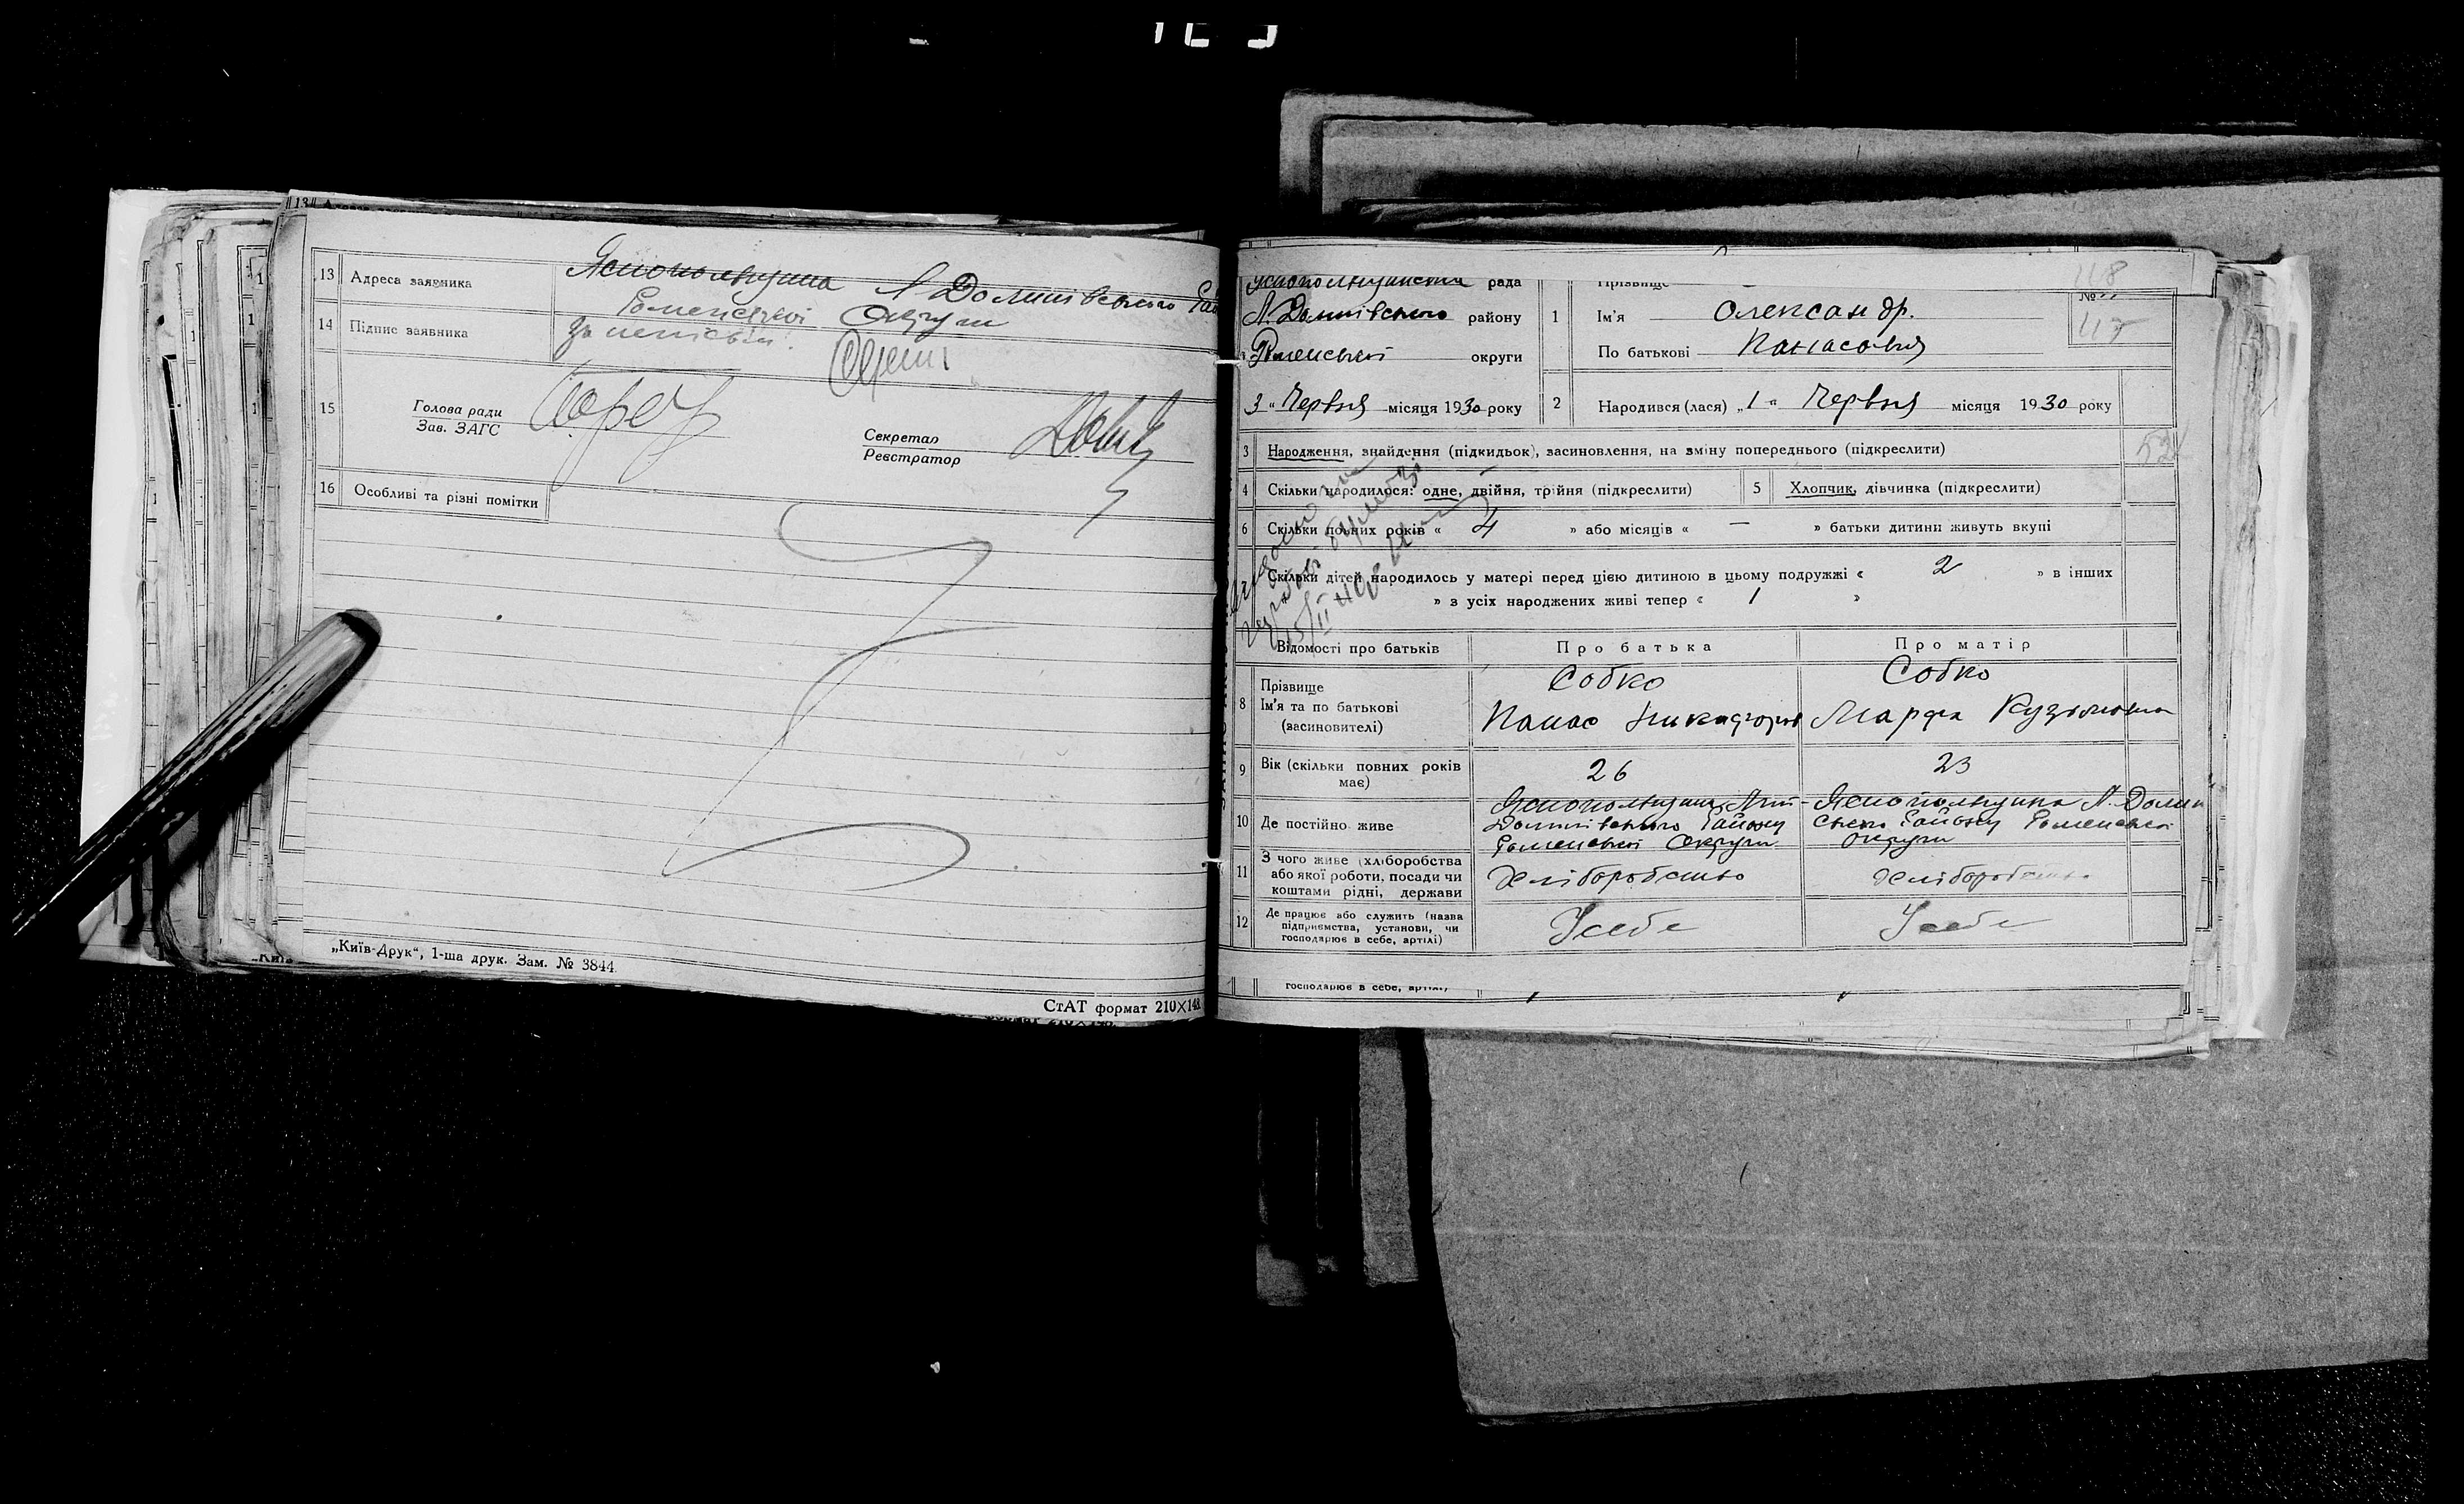 13 Адреса заявника Яснопольщина Л Долинівського Рай
Роменської Округи
14 Підпис заявника
15 Голова ради
Зав. ЗАГС
Секретар
Реєстратор
16 Особливі та різні помітки
„Київ-Друк“, 1-ша друк. Зам. № 3844
СтАТ формат 210×148
118
рада
Прізвище
№
117
Л. Долинівського району
1 Ім'я Олександр.
Роменської округи
По батькові Панасович
3 “ Червня місяця 1930 року
2 Народився(лася) „1“ Червня місяця 1930 року
3 Народження, знайдення (підкидьок), засиновлення, на зміну попереднього (підкреслити)
4 Скільки народилося: одне, двійня, трійня (підкреслити)
5 Хлопчик, дівчинка (підкреслити)
6 Скільки повних років « 4 » або місяців « — » батьки дитини живуть вкупі
Скільки дітей народилось у матері перед цією дитиною в цьому подружжі « 2 » в інших
» з усіх народжених живі тепер « 1 »
Відомості про батьків Про батька Про матір
8 Прізвище Собко Собко
Ім'я та по батькові Панас Никифоров Марфа Кузьмовна
(засиновителі)
9 Вік (скільки повних років має) 26 23
10 Де постійно живе
Яснопольщина Лип- Яснопольщина Л. Долин
Долинівського Району ського Району Роменської
Роменської Округи округи
11 З чого живе (хліборобства
або якої роботи, посади чи
коштами рідні, держави
Хліборобство Хліборобство
12 Де працює або служить (назва
підприємства, установи, чи
господарює в себе, артілі)
У себе У себе
господарює в себе, артілі)